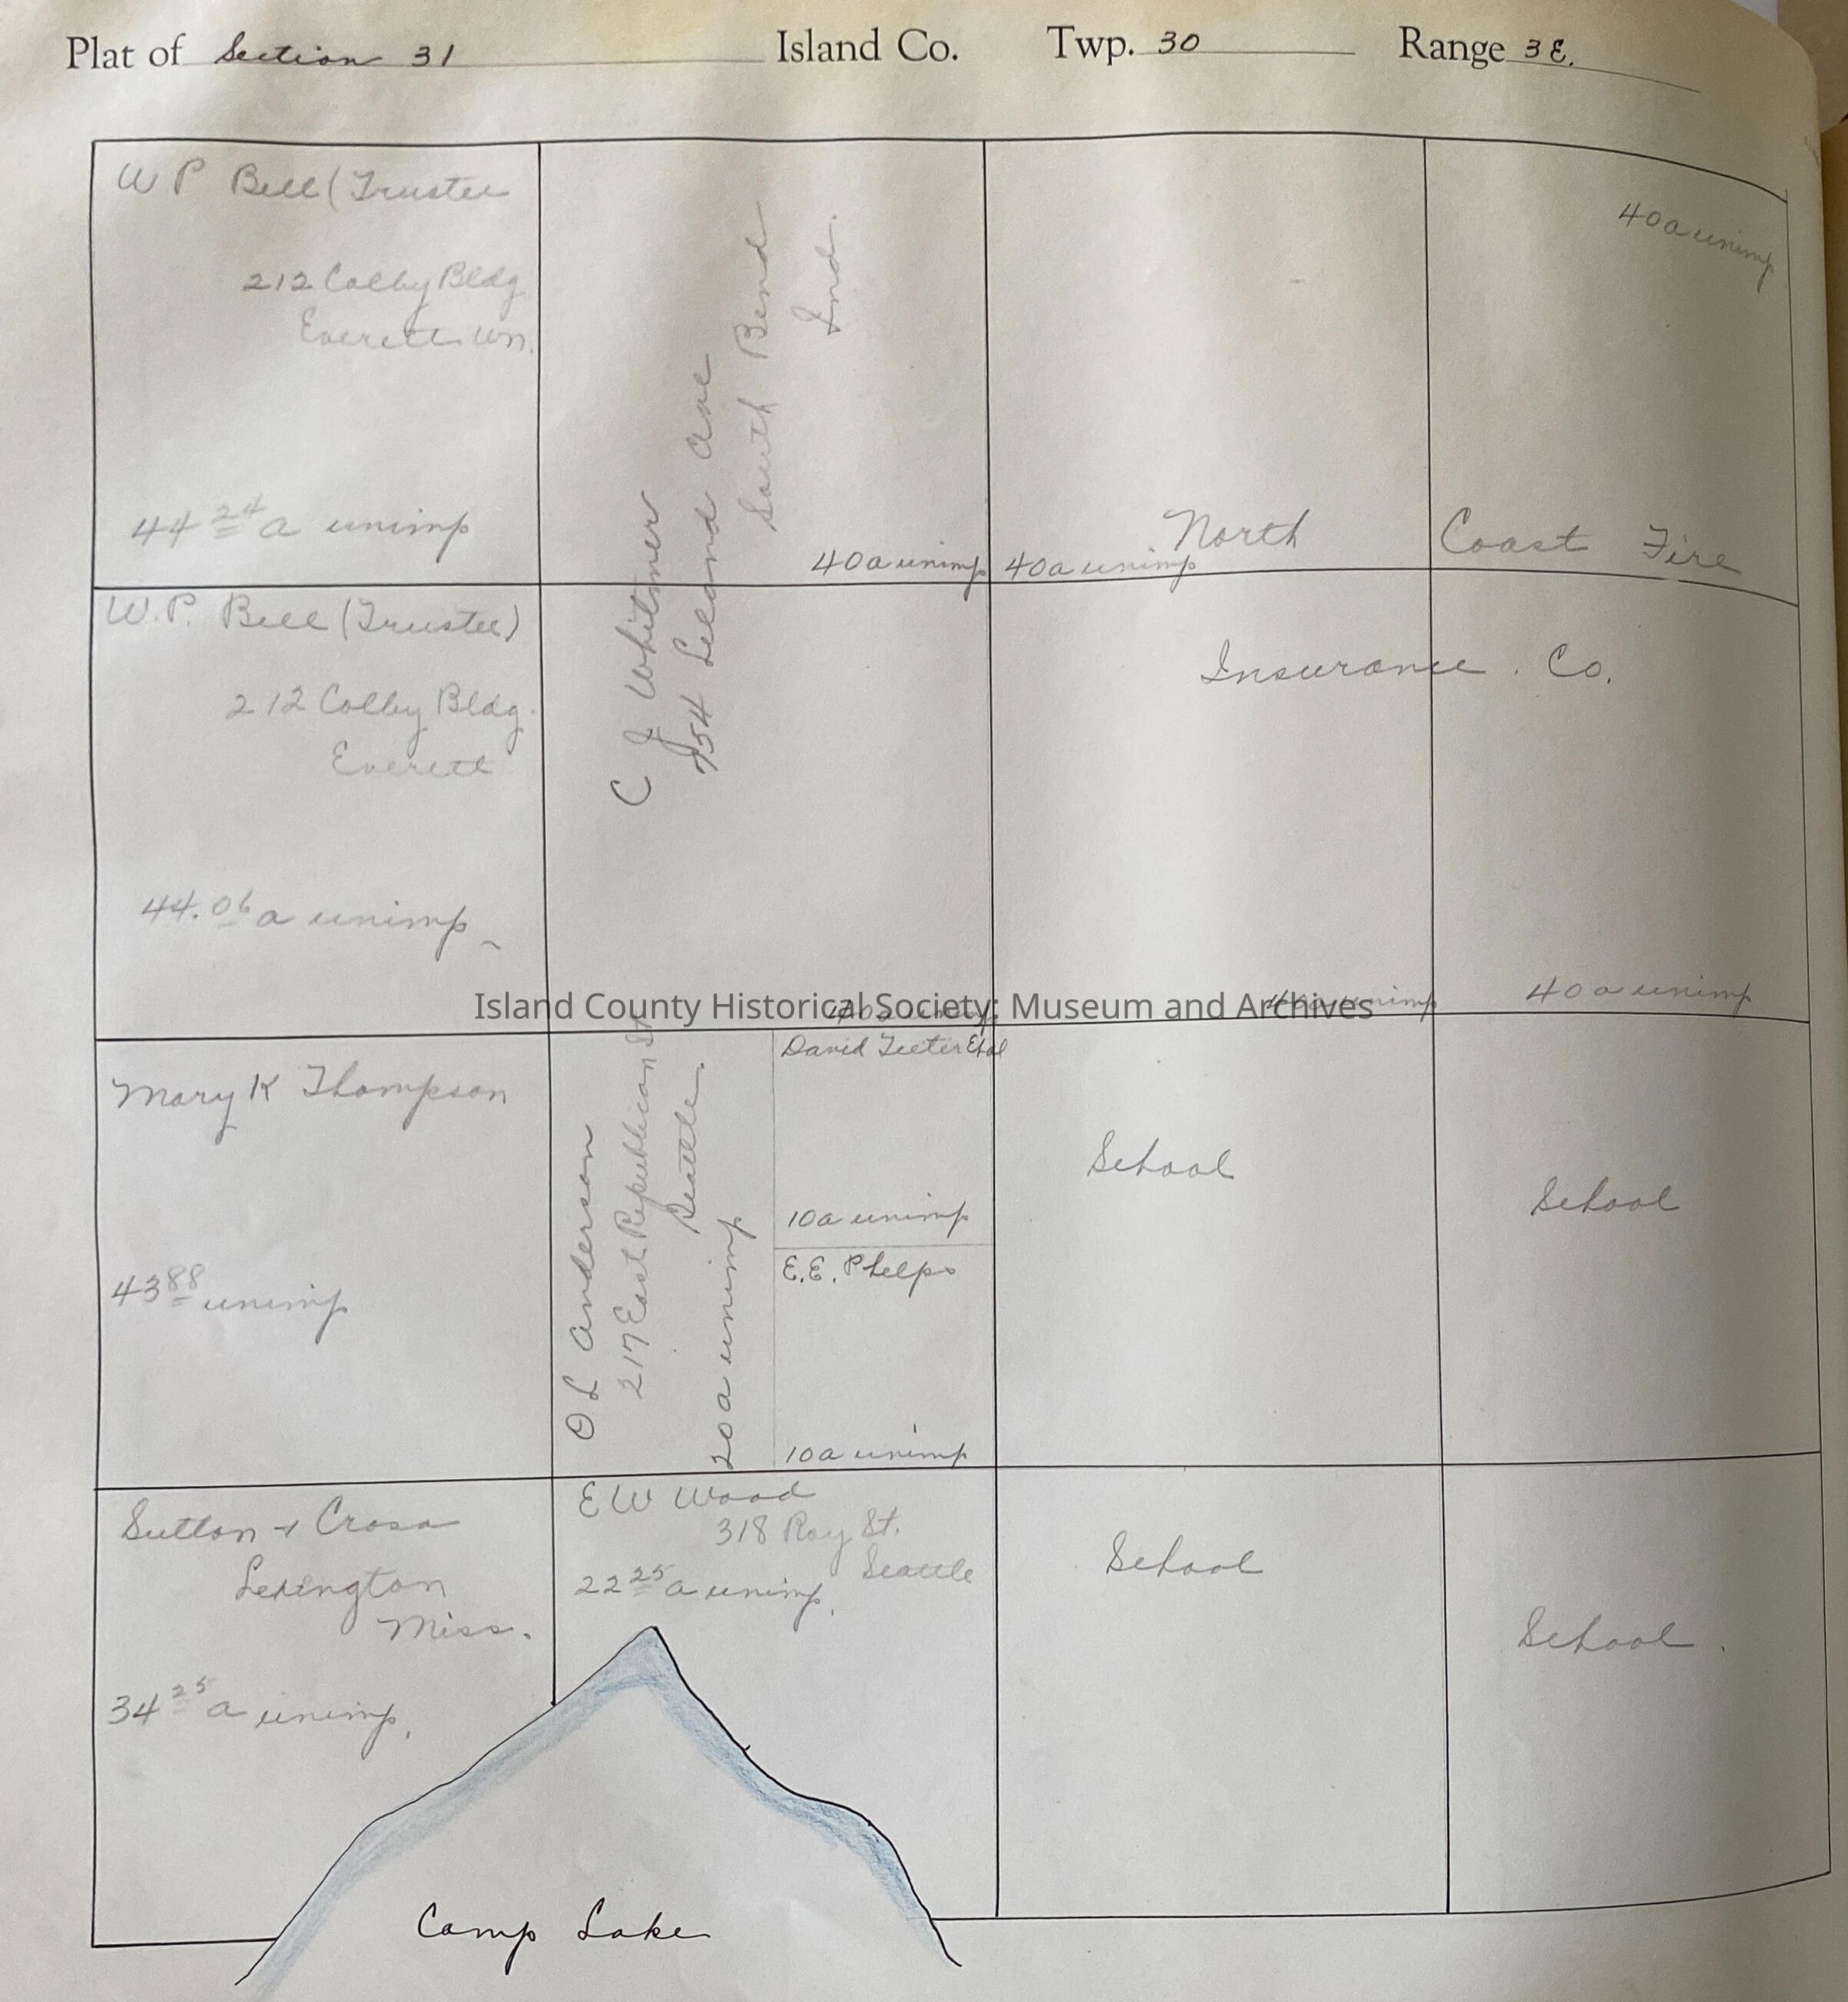 Plat of Section 31 Island Co. Twp. 30 Range 3 E.
W P Bell (Trustee
212 Colby Bldg
Everett Wn.
44 24 a unimp
C J Whitmer
754 Leland Ave
South Bend
Ind.
40a unimp
40a unimp
40a unimp
North Coast Fire
Insurance. Co.
W.P. Bell (Trustee)
212 Colby Bldg.
Everett
44.06 a unimp
40a unimp
40a unimp
40a unimp
Island County Historical Society: Museum and Archives
Mary K Thompson
43 88 unimp
O L Anderson
217 East Republican St
Seattle.
20a unimp
David Teeter Etal
10a unimp
E.E. Phelps
10a unimp
School
School
Sutton + Cross
Lexington
Miss.
34 25 a unimp.
E W Wood
318 Roy St.
Seattle
22 25 a unimp.
School
School.
Camp Lake